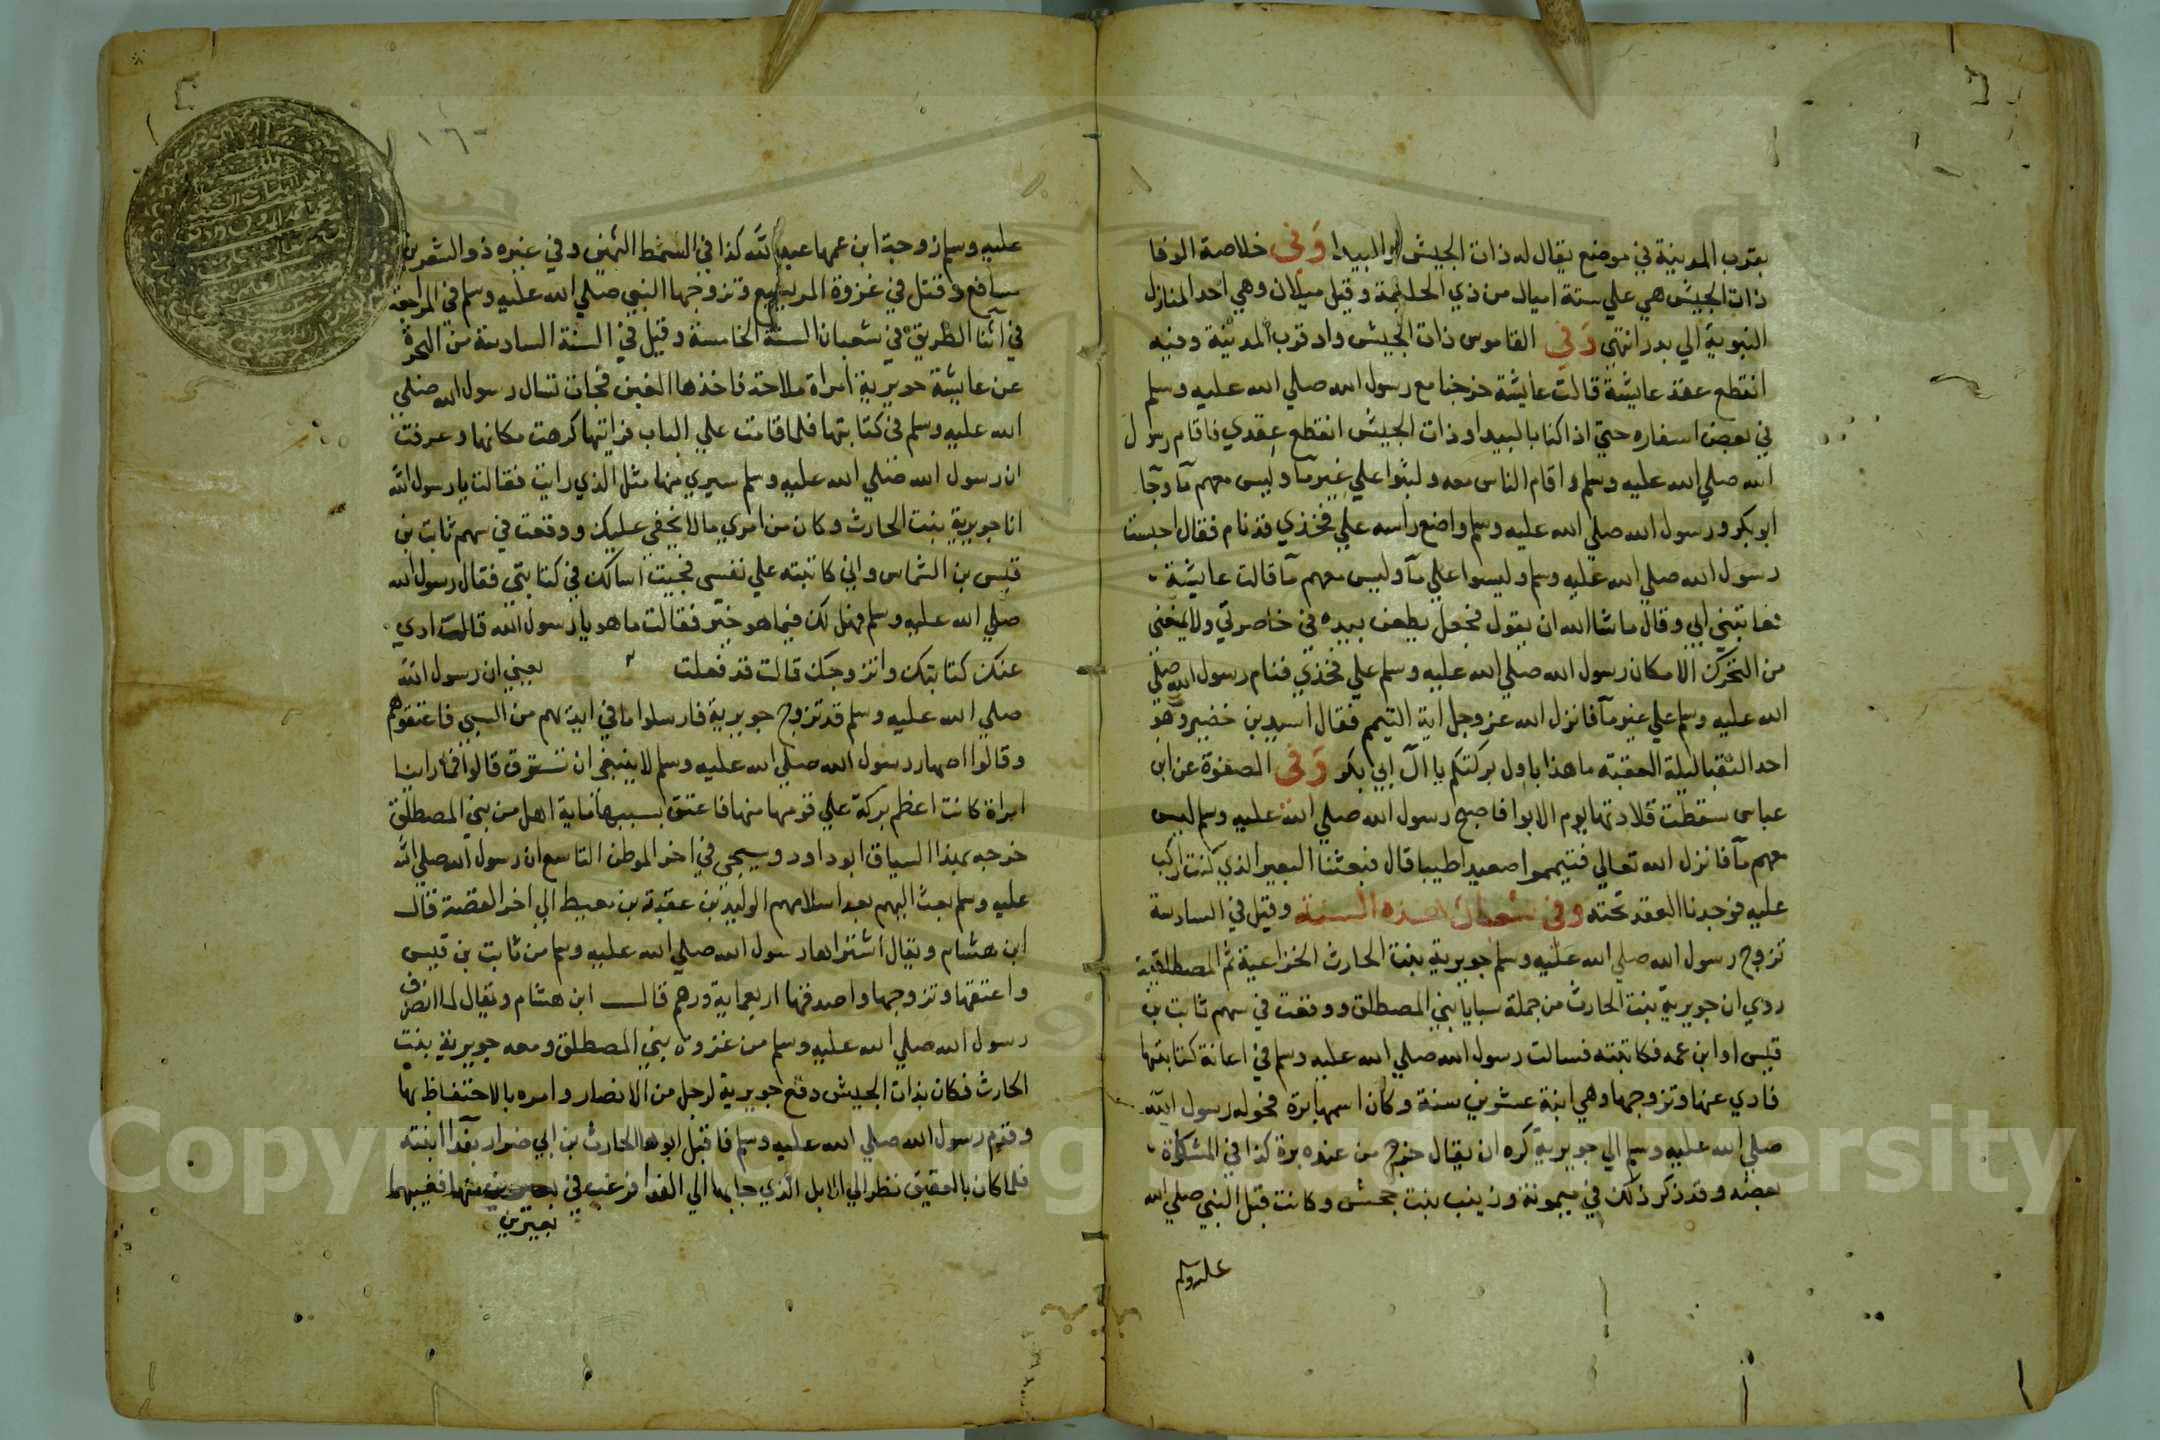 بقرب المدينة في موضع يقال له ذات الجيش او البيدا وفي خلاصة الوفا
ذات الجيش هي علي ستة اميال من ذي الحليفة وقيل ميلان وهي احد المنازل
النبوية الي بدر انتهي وفي القاموس ذات الجيش واد قرب المدينة وفيه
انقطع عقد عايشة قالت عايشة خرجنا مع رسول الله صلي الله عليه وسلم
في بعض اسفاره حتي اذا كنا بالبيدا او ذات الجيش انقطع عقدي فاقام رسول
الله صلي الله عليه وسلم واقام الناس معه ولبثوا علي غير مآ وليس معهم مآ وجآ
ابو بكر ورسول الله صلي الله عليه وسلم واضع راسه علي فخذي قد نام فقال احبست
رسول الله صلي الله عليه وسلم وليسوا علي مآ وليس معهم مآ قالت عايشة
فعاتبني ابي وقال ماشا الله ان يقول فجعل يطعن بيده في خاصرتي ولا يمنعني
من التحرك الا مكان رسول الله صلي الله عليه وسلم علي فخذي فنام رسول الله صلي
الله عليه وسلم علي غير مآ فانزل الله عز وجل اية التيمم فقال اسيد بن حضير وهو
احد النقبا ليلة العقبة ما هذا باول بركتكم يا آل ابي بكر وفي الصفوة عن ابن
عباس سقطت قلادتها يوم الابوا فاصبح رسول الله صلي الله عليه وسلم ليس
معهم مآ فانزل الله تعالي فتيمموا صعيدا طيبا قال فبعثنا البعير الذي كنت اركب
عليه فوجدنا العقد تحته وفي شعبان هذه السنة وقيل في السادسة
تزوج رسول الله صلي الله عليه وسلم جويرية بنت الحارث الخزاعية ثم المصطلقية
روي ان جويرية بنت الحارث من جملة سبايا بني المصطلق ووقعت في سهم ثابت بن
قيس او ابن عمه فكاتبته فسالت رسول الله صلي الله عليه وسلم في اعانة كتابتها
فادي عنها وتزوجها وهي ابنة عشرين سنة وكان اسمها برة فحوله رسول الله
صلي الله عليه وسلم الي جويرية كره ان يقال خرج من عنده برة كذا في المشكاة
بعضه وقد ذكر ذلك في ميمونة وزينب بنت جحش وكانت قبل النبي صلي الله
عليه وسلم
١٦٠
عليه وسلم زوجة ابن عمها عبد الله كذا في السمط الثمين وفي غيره ذو الشفر بن
مسافع وقتل في غزوة المريسيع وتزوجها النبي صلي الله عليه وسلم في المراجعة
في اثنا الطريق في شعبان السنة الخامسة وقيل في السنة السادسة من الهجرة
عن عايشة جويرية امراة ملاحة تاخذها العين فجات تسال رسول الله صلي
الله عليه وسلم في كتابتها فلما قامت علي الباب فرايتها كرهت مكانها وعرفت
ان رسول الله صلي الله عليه وسلم سيري منها مثل الذي رايت فقالت يا رسول الله
انا جويرية بنت الحارث وكان من امري ما لا يخفي عليك ووقعت في سهم ثابت بن
قيس بن الشماس واني كاتبته علي نفسي فجيت اسالك في كتابتي فقال رسول الله
صلي الله عليه وسلم فهل لك فيما هو خير فقالت ما هو يا رسول الله قالت ادي
عنك كتابتك واتزوجك قالت قد فعلت يعني ان رسول الله
صلي الله عليه وسلم قد تزوج جويرية فارسلوا ما في ايديهم من السبي فاعتقوهم
وقالوا اصهار رسول الله صلي الله عليه وسلم لا ينبغي ان تسترق قالوا فما راينا
امراة كانت اعظم بركة علي قومها منها فاعتق بسببها ماية اهل من بني المصطلق
خرجه بهذا السياق ابو داود وسيجي في اخر الموطن التاسع ان رسول الله صلي الله
عليه وسلم بعث اليهم بعد اسلامهم الوليد بن عقبة بن معيط الي اخر القصة قال
ابن هشام ويقال اشتراها رسول الله صلي الله عليه وسلم من ثابت بن قيس
واعتقها وتزوجها واصدقها اربعماية درهم قال ابن هشام ويقال لما انصرف
رسول الله صلي الله عليه وسلم من غزوة بني المصطلق ومعه جويرية بنت
الحارث فكان بذات الجيش دفع جويرية لرجل من الانصار وامره بالاحتفاظ بها
وقدم رسول الله صلي الله عليه وسلم فاقبل ابوها الحارث بن ابي ضرار بفدا ابنته
فلما كان بالعقيق نظر الي الابل الذي جا بها الي الفدا فرغب في بعيرين منها فغيبهما
بعيرين
Copyright © King Saud University